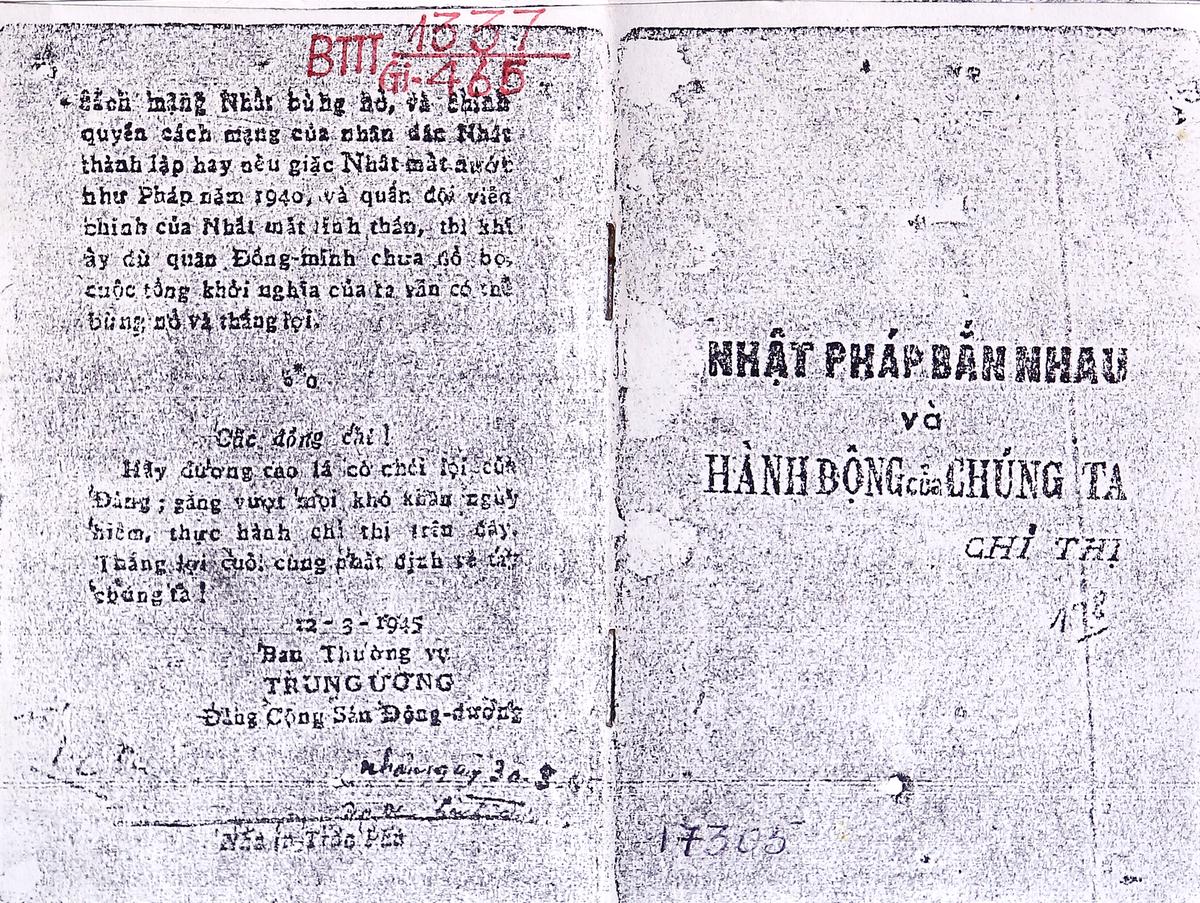 BTTT 1337
Gi-465
Cách mạng Nhật bùng nổ, và chính
quyền cách mạng của nhân dân Nhật
thành lập hay nếu giặc Nhật mất nước
như Pháp năm 1940, và quân đội viễn
chinh của Nhật mất tinh thần, thì khi
ấy dù quân Đồng-minh chưa đổ bộ,
cuộc tổng khởi nghĩa của ta vẫn có thể
bùng nổ và thắng lợi.
Các đồng chí !
Hãy dương cao lá cờ chói lọi của
Đảng ; gắng vượt mọi khó khăn nguy
hiểm, thực hành chỉ thị trên đây.
Thắng lợi cuối cùng nhất định về tay
chúng ta !
12 - 3 - 1945
Ban Thường vụ
TRUNG ƯƠNG
Đảng Cộng Sản Đông-dương
nhận ngày 30-8
Nhà in
NHẬT PHÁP BẮN NHAU
và
HÀNH ĐỘNG của CHÚNG TA
CHỈ THỊ
178
17305